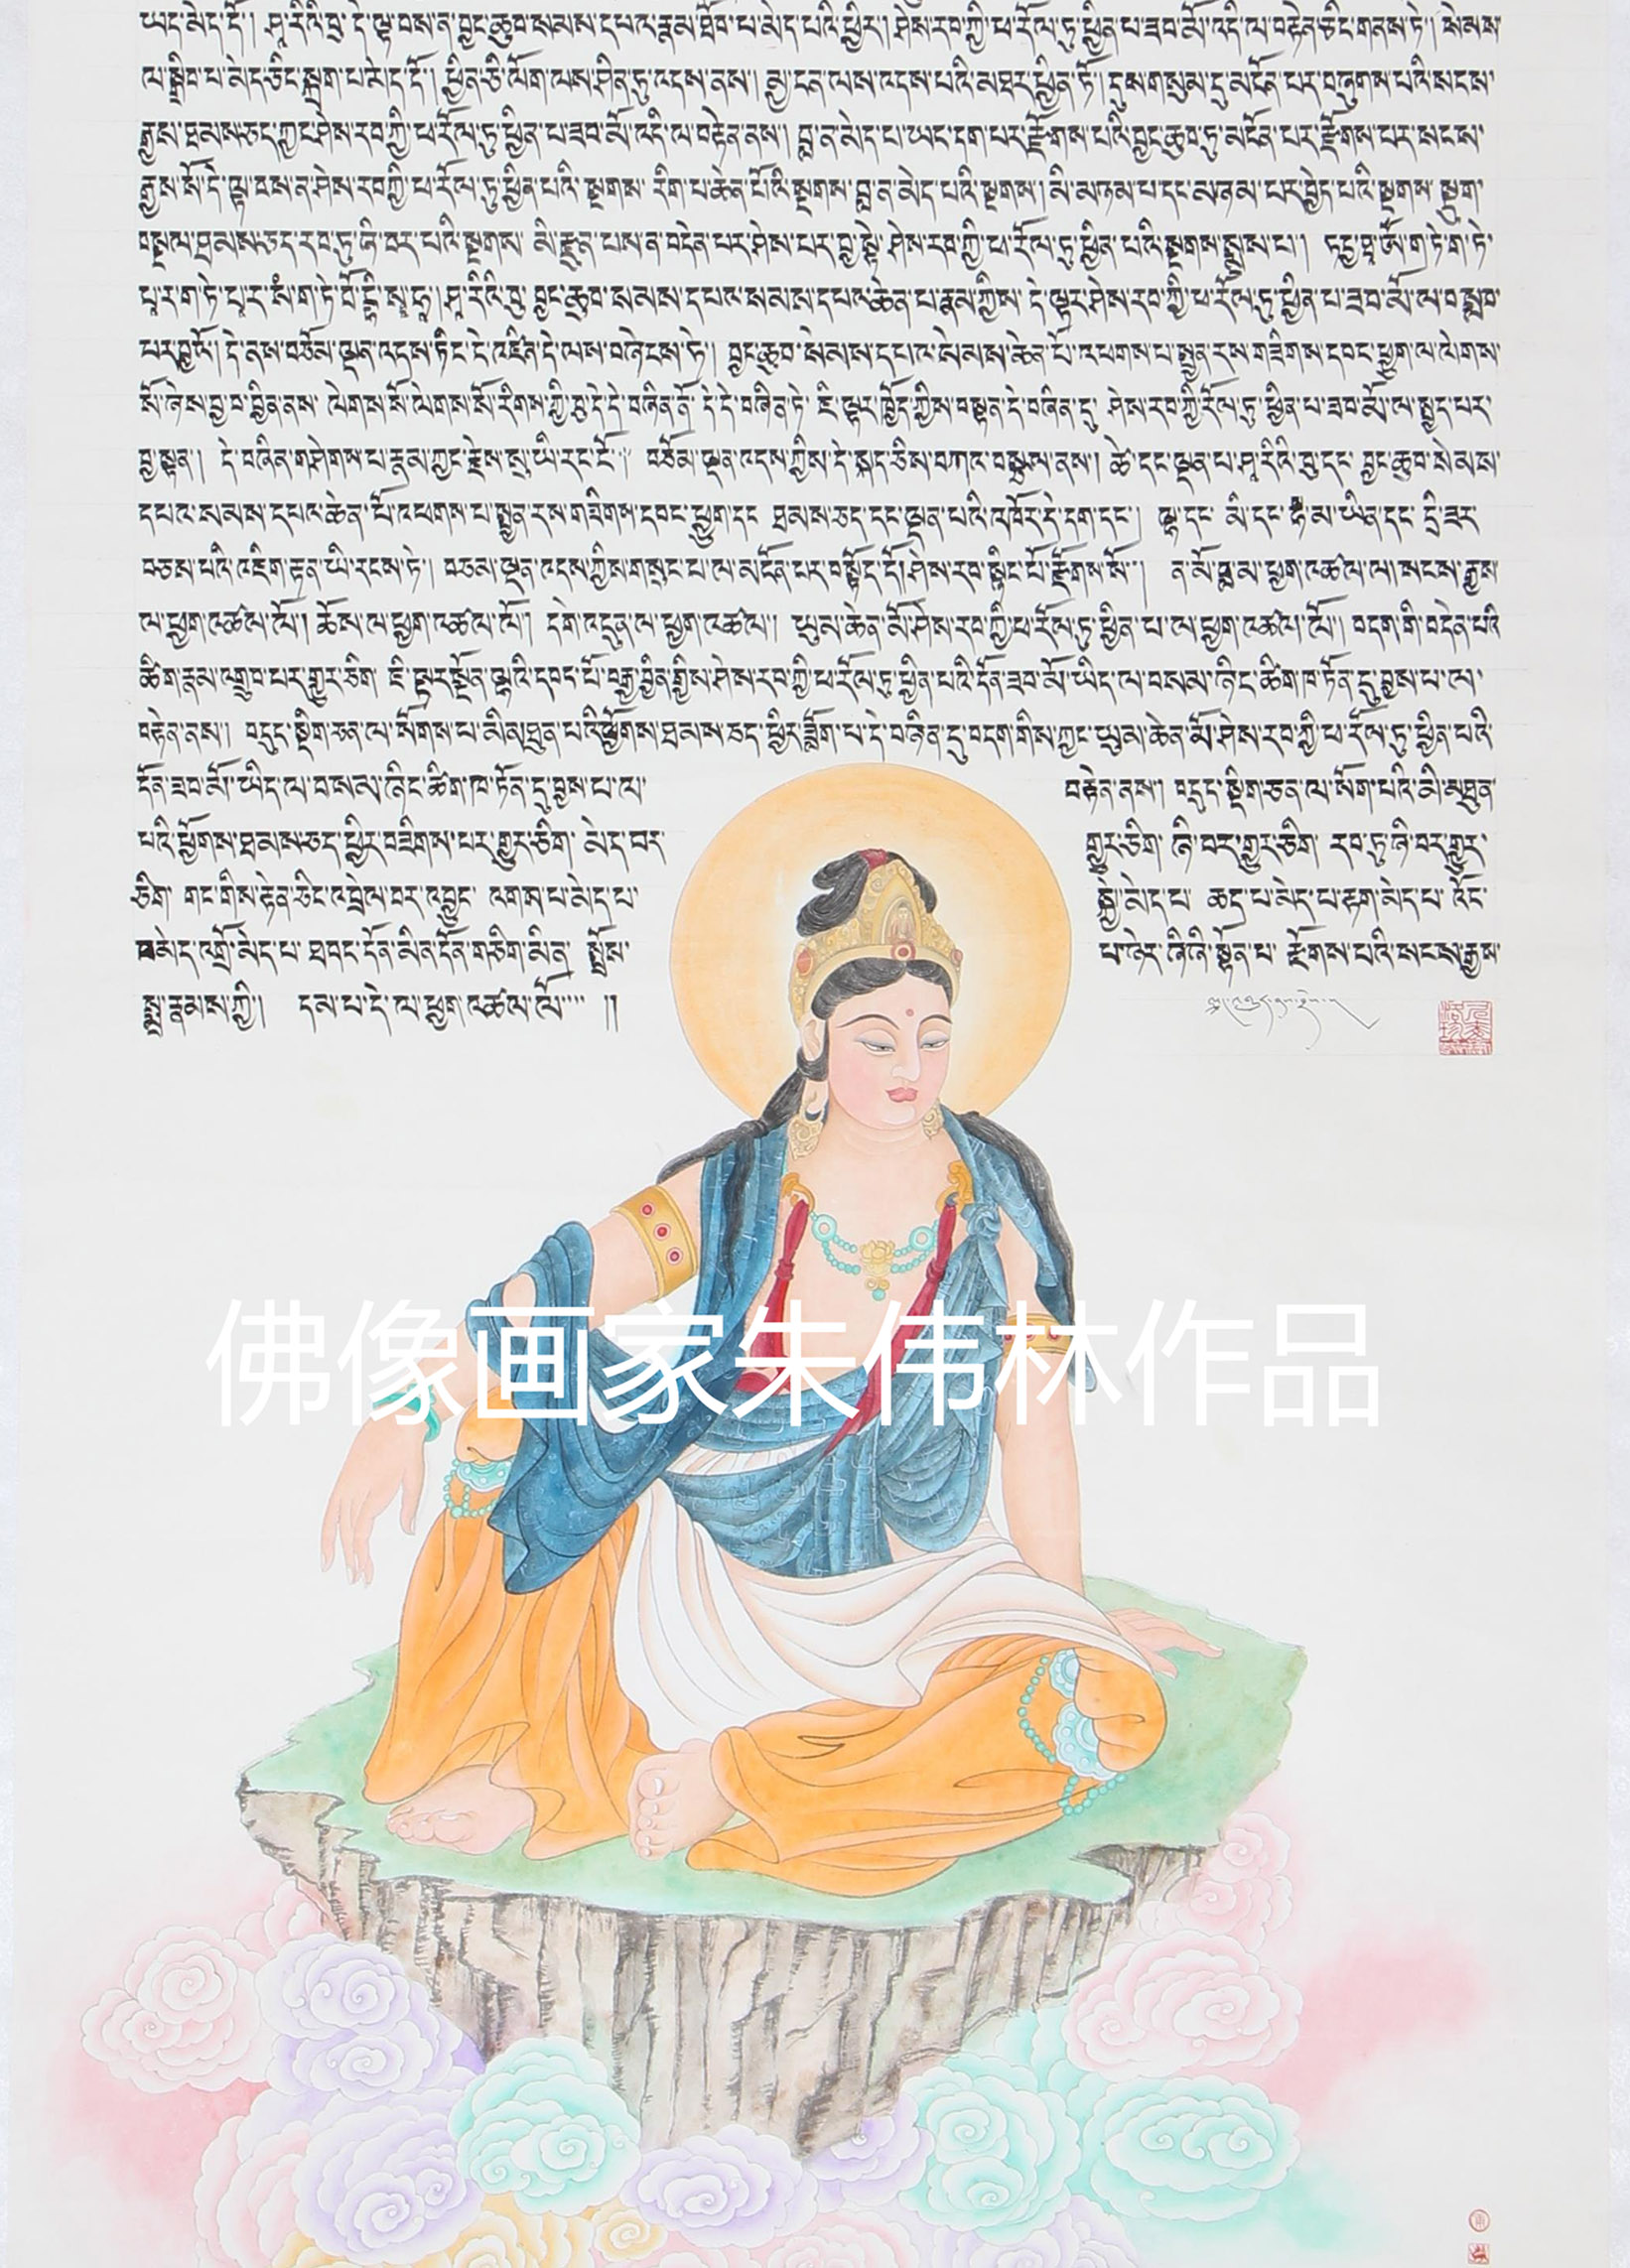 ཡང་མེད་དོ། །ཤཱ་རིའི་བུ་ དེ་ལྟ་བས་ན་བྱང་ཆུབ་སེམས་དཔའ་རྣམས་ཐོབ་པ་མེད་པའི་ཕྱིར། ཤེས་རབ་ཀྱི་ཕ་རོལ་ཏུ་ཕྱིན་པ་ཟབ་མོ་འདི་ལ་བརྟེན་ཅིང་གནས་ཏེ། སེམས་
ལ་སྒྲིབ་པ་མེད་ཅིང་སྐྲག་པ་མེད་དོ། །ཕྱིན་ཅི་ལོག་ལས་ཤིན་ཏུ་འདས་ནས། མྱ་ངན་ལས་འདས་པའི་མཐར་ཕྱིན་ཏོ། །དུས་གསུམ་དུ་མངོན་པར་བཞུགས་པའི་སངས་
རྒྱས་ཐམས་ཅད་ཀྱང་ཤེས་རབ་ཀྱི་ཕ་རོལ་ཏུ་ཕྱིན་པ་ཟབ་མོ་འདི་ལ་བརྟེན་ནས། བླ་ན་མེད་པ་ཡང་དག་པར་རྫོགས་པའི་བྱང་ཆུབ་ཏུ་མངོན་པར་རྫོགས་པར་སངས་
རྒྱས་སོ་དེ་ལྟ་བས་ན་ཤེས་རབ་ཀྱི་ཕ་རོལ་ཏུ་ཕྱིན་པའི་སྔགས་ རིག་པ་ཆེན་པོའི་སྔགས་བླ་ན་མེད་པའི་སྔགས། མི་མཉམ་པ་དང་མཉམ་པར་བྱེད་པའི་སྔགས་ སྡུག་
བསྔལ་ཐམས་ཅད་རབ་ཏུ་ཞི་བར་པའི་སྔགས་ མི་རྫུན་པས་ན་བདེན་པར་ཤེས་པར་བྱ་སྟེ་ ཤེས་རབ་ཀྱི་ཕ་རོལ་ཏུ་ཕྱིན་པའི་སྔགས་སྨྲས་པ། ཏདྱ་ཐཱ་ཨོཾ་ག་ཏེ་ག་ཏེ་
པཱ་ར་ག་ཏེ་པཱ་ར་སཾ་ག་ཏེ་བོ་དྷི་སྭཱ་ཧཱ། ཤཱ་རིའི་བུ་ བྱང་ཆུབ་སམས་དཔའ་སམས་དཔའ་ཆེན་པ་རྣམ་ཀྱིས་ དེ་ལྟར་ཤེས་རབ་ཀྱི་ཕ་རོལ་ཏུ་ཕྱིན་པ་ཟབ་མོ་ལ་བསླབ་
པར་བྱའོ། །དེ་ནས་བཅོམ་ལྡན་འདས་ཏིང་ངེ་འཛིན་དེ་ལས་བཞེངས་ཏེ། བྱང་ཆུབ་སེམས་དཔའ་སེམས་ཆེན་པོ་འཕགས་པ་སྤྱན་རས་གཟིགས་དབང་ཕྱུག་ལ་ལེགས་
སོ་ཞེས་བྱ་བ་བྱིན་ནས་ ལེགས་སོ་ལེགས་སོ་རིགས་ཀྱི་བུ་དེ་དེ་བཞིན་ནོ་ དེ་དེ་བཞིན་ཏེ་ ཇི་ལྟར་ཁྱོད་ཀྱིས་བསྟན་དེ་བཞིན་དུ་ ཤེས་རབ་ཀྱི་རོལ་ཏུ་ཕྱིན་པ་ཟབ་མོ་ལ་སྤྱད་པར་
བྱ་སྟན། དེ་བཞིན་གཤེགས་པ་རྣམ་ཀྱང་རྗེས་སུ་ཡི་རང་ངོ་། བཅོམ་ལྡན་འདས་ཀྱིས་དེ་སྐད་ཅེས་བཀའ་བསྩལ་ནས། ཚེ་དང་ལྡན་པ་ཤཱ་རིའི་བུ་དང་ བྱང་ཆུབ་སེམས་
དཔའ་སམས་དཔའ་ཆེན་པོ་འཕགས་པ་སྤྱན་རས་གཟིགས་དབང་ཕྱུག་དང་ ཐམས་ཅད་དང་ལྡན་པའི་འཁོར་དེ་དག་དང་། ལྷ་དང་ མི་དང་ལྷ་མ་ཡིན་དང་ དྲི་ཟར་
བཅས་པའི་འཇིག་རྟེན་ཡི་རངས་ཏེ། བཅམ་ལྡན་འདས་ཀྱིས་གསུང་པ་ལ་མངོན་པར་བསྟོད་དོ། ཤེས་རབ་སྙིང་པོ་རྫོགས་སོ། ན་མོ་བླ་མ་ཕྱག་འཚལ་ལ། སངས་རྒྱས་
ལ་ཕྱག་འཚལ་ལོ། ཆོས་ལ་ཕྱག་འཚལ་ལོ། དགེ་འདུན་ལ་ཕྱག་འཚལ། ཡུམ་ཆེན་མོ་ཤེས་རབ་ཀྱི་ཕ་རོལ་ཏུ་ཕྱིན་པ་ལ་ཕྱག་འཚལ་ལོ། བདག་གི་བདེན་པའི་
ཚིག་རྣམ་འགྲུབ་པར་གྱུར་ཅིག་ ཇི་ལྟར་སྔོན་ལྷའི་དབང་པོ་བརྒྱ་བྱིན་གྱིས་ཤེས་རབ་ཀྱི་ཕ་རོལ་ཏུ་ཕྱིན་པའི་དོན་ཟབ་མོ་ཡིད་ལ་བསམ་ཞིང་ཚིག་ཁ་ཏོན་དུ་བྱས་པ་ལ་
བརྟེན་ནས། བདུད་སྡིག་ཅན་ལ་སོགས་པ་མི་མཐུན་པའི་ཕྱོགས་ཐམས་ཅད་ཕྱིར་ཟློག་པ་དེ་བཞིན་དུ་བདག་གིས་ཀྱང་ཡུམ་ཆེན་མོ་ཤེས་རབ་ཀྱི་ཕ་རོལ་ཏུ་ཕྱིན་པའི་
དོན་ཟབ་མོ་ཡིད་ལ་བསམ་ཞིང་ཚིག་ཁ་ཏོན་དུ་བྱས་པ་ལ་ བརྟེན་ནས། བདུད་སྡིག་ཅན་ལ་སོག་པའི་མི་མཐུན་
པའི་ཕྱོགས་ཐམས་ཅད་ཕྱིར་བཟློག་པར་གྱུར་ཅིག་ མེད་བར་ གྱུར་ཅིག་ ཞི་བར་གྱུར་ཅིག་ རབ་ཏུ་ཞི་བར་གྱུར་
ཅིག་ གང་གིས་རྟེན་ཅིང་འབྲེལ་བར་འབྱུང་ འགག་པ་མེད་པ་ སྐྱེ་མེད་པ་ ཆད་པ་མེད་པ་རྟག་མེད་པ་ འོང་
བ་མེད་འགྲོ་མེད་པ་ ཐ་དད་དོན་མིན་དོན་གཅིག་མིན་ སྤྲོས་ པ་ཉེར་ཞི་ཞི་སྟོན་པ་ རྫོགས་པའི་སངས་རྒྱས་
སྨྲ་རྣམས་ཀྱི། དམ་པ་དེ་ལ་ཕྱག་འཚལ་ལོ་་་་ །།
佛像画家朱伟林作品